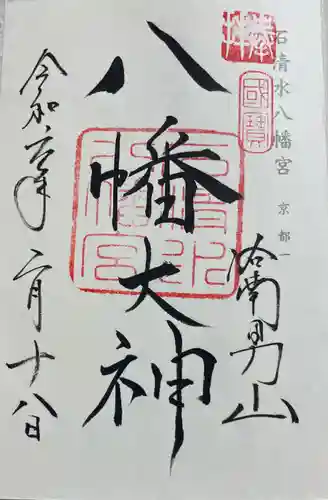 奉拝
國寶
石清水八幡宮 京都一
洛南男山
八幡大神
石清水八幡宮
令和六年二月十八日